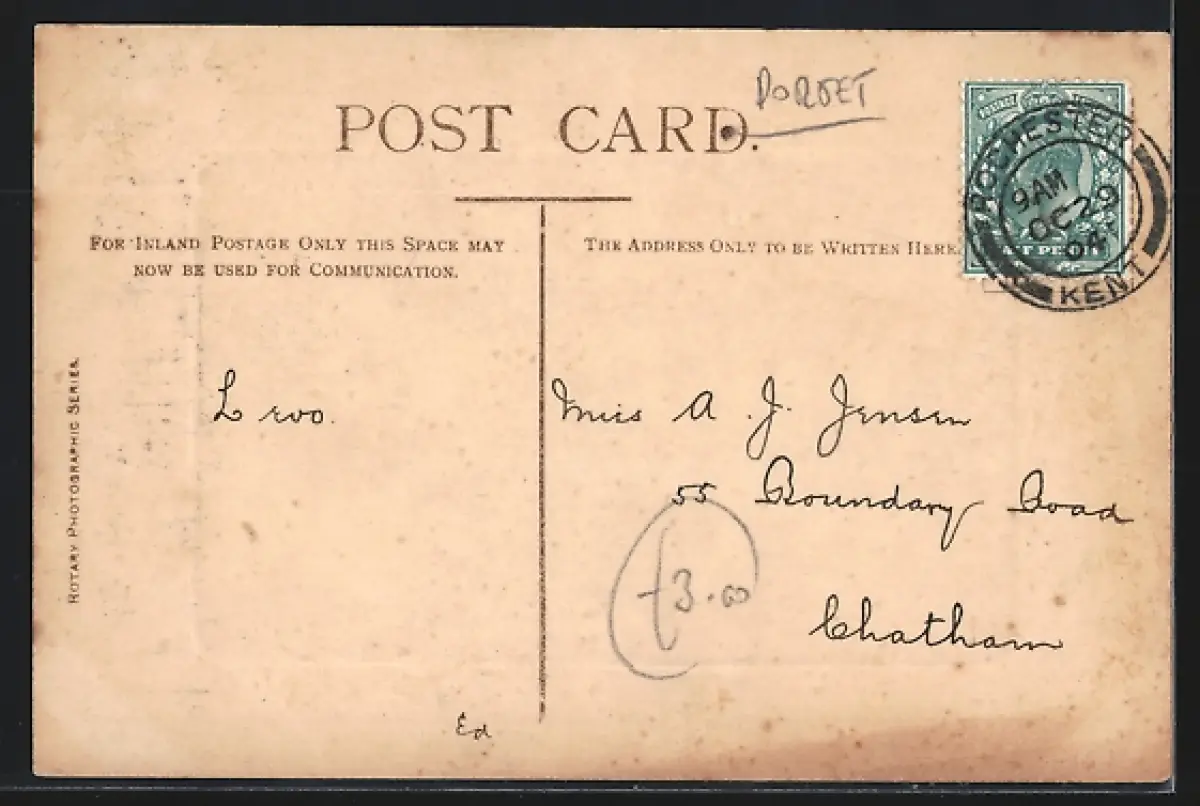 POST CARD.
DORSET
FOR INLAND POSTAGE ONLY THIS SPACE MAY
NOW BE USED FOR COMMUNICATION.
THE ADDRESS ONLY TO BE WRITTEN HERE.
ROCHESTER
9 AM
OC 29
04
KENT
ROTARY PHOTOGRAPHIC SERIES.
Miss A. J. Jensen
55 Boundary Road
Chatham
£3.00
Ed